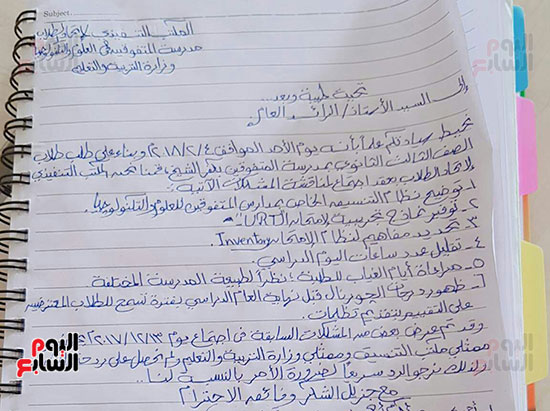 Subject:
المكتب التنفيذي لاتحاد طلاب
مدرسة المتفوقين في العلوم والتكنولوجيا
وزارة التربية والتعليم
تحية طيبة وبعد...
إلى السيد الأستاذ / الرائد العام
نحيط سيادتكم علما بأنه يوم الأحد الموافق ٢٠١٨/٢/٤ وبناء على طلب طلاب
الصف الثالث الثانوي بمدرسة المتفوقين بكفر الشيخ، قمنا نحن المكتب التنفيذي
لاتحاد الطلاب بعقد اجتماع لمناقشة المشكلات الآتية :
١- توضيح نظام التنسيق الخاص بمدارس المتفوقين للعلوم والتكنولوجيا.
٢- توفير نماذج تجريبية لامتحان الـ URT.
٣- تحديد مفاهيم لنظام الامتحان Inventory.
٤- تقليل عدد ساعات اليوم الدراسي.
٥- مراعاة أيام الغياب للطلبة ؛ نظراً لطبيعة المدرسة المختلفة
٦- ظهور درجات الجورنال قبل نهاية العام الدراسي بفترة تسمح للطلاب المعترضين
على التقييم بتقديم تظلمات.
وقد تم عرض بعض من المشكلات السابقة في اجتماع يوم ٢٠١٧/١٢/١٣
ممثلي مكتب التنسيق وممثلي وزارة التربية والتعليم ولم نحصل على رد
لذلك نرجو الرد سريعاً لضرورة الأمر بالنسبة لنا...
مع جزيل الشكر وفائق الاحترام
اليوم السابع
اليوم السابع
اليوم السابع
اليوم السابع